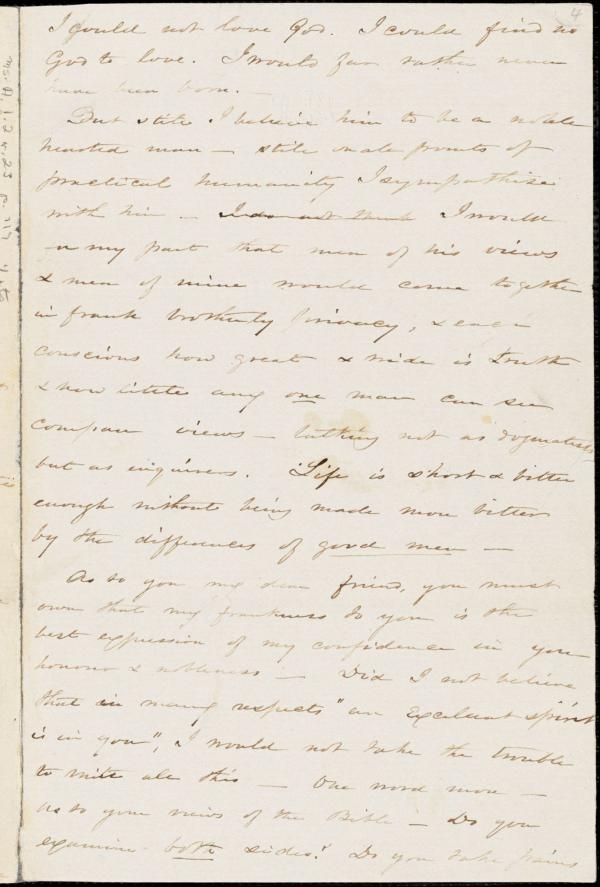 4
I could not love God. I could find no
God to love. I would far rather never
have been born. —
But still I believe him to be a noble
hearted man — still on all points of
practical humanity I sympathise
with him — I do not think I would
on my part that men of his views
& men of mine would come together
in frank brotherly privacy, & each
conscious how great & wide is Truth
& how little any one man can see
compare views — talking not as dogmatists
but as inquirers. Life is short & bitter
enough without being made more bitter
by the differences of good men —
As to you my dear friend, you must
own that my frankness to you is the
best expression of my confidence in your
honour & nobleness — Did I not believe
that in many respects "an Excellent spirit
is in you", I would not take the trouble
to write all this — One word more —
as to your views of the Bible — Do you
examine both sides? Do you take pains
Ms. A. 1.2 v. 23 p.